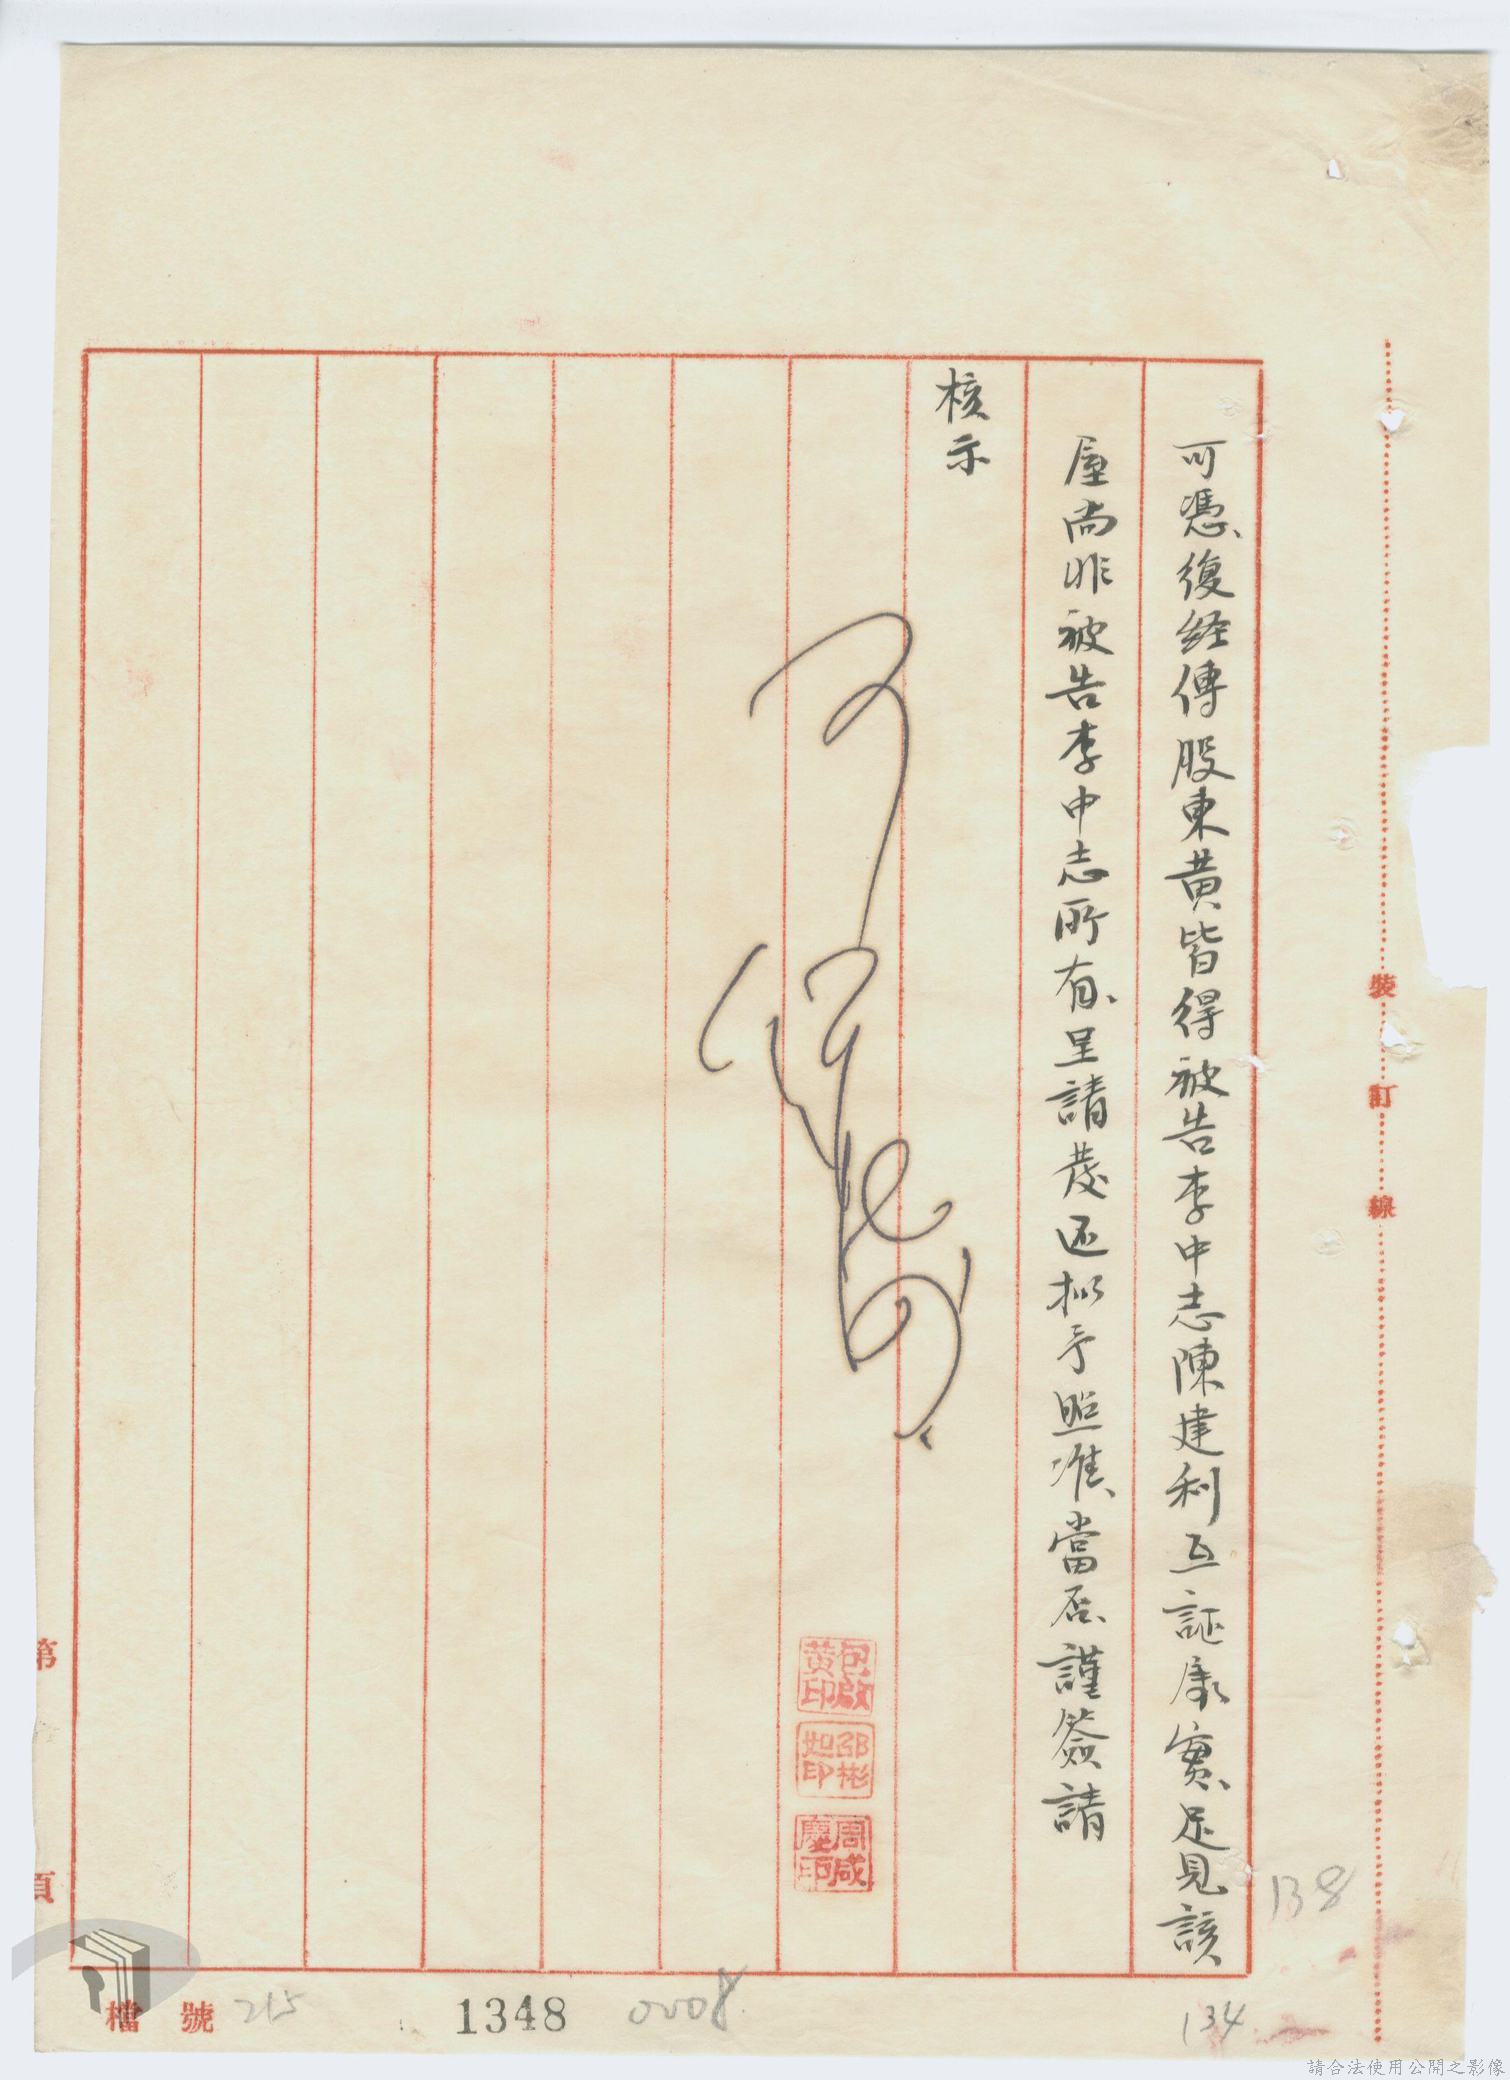 可憑、復経傳股東黄皆得被告李中志陳建利互証屬實、足見該
屋尚非被告李中志所有、呈請發还拟予照准、當否、謹簽請
核示
包啟黄印
邵彬如印
周咸慶印
裝
訂
線
第
頁
138
134
檔號 215
1348
0008
請合法使用公開之影像